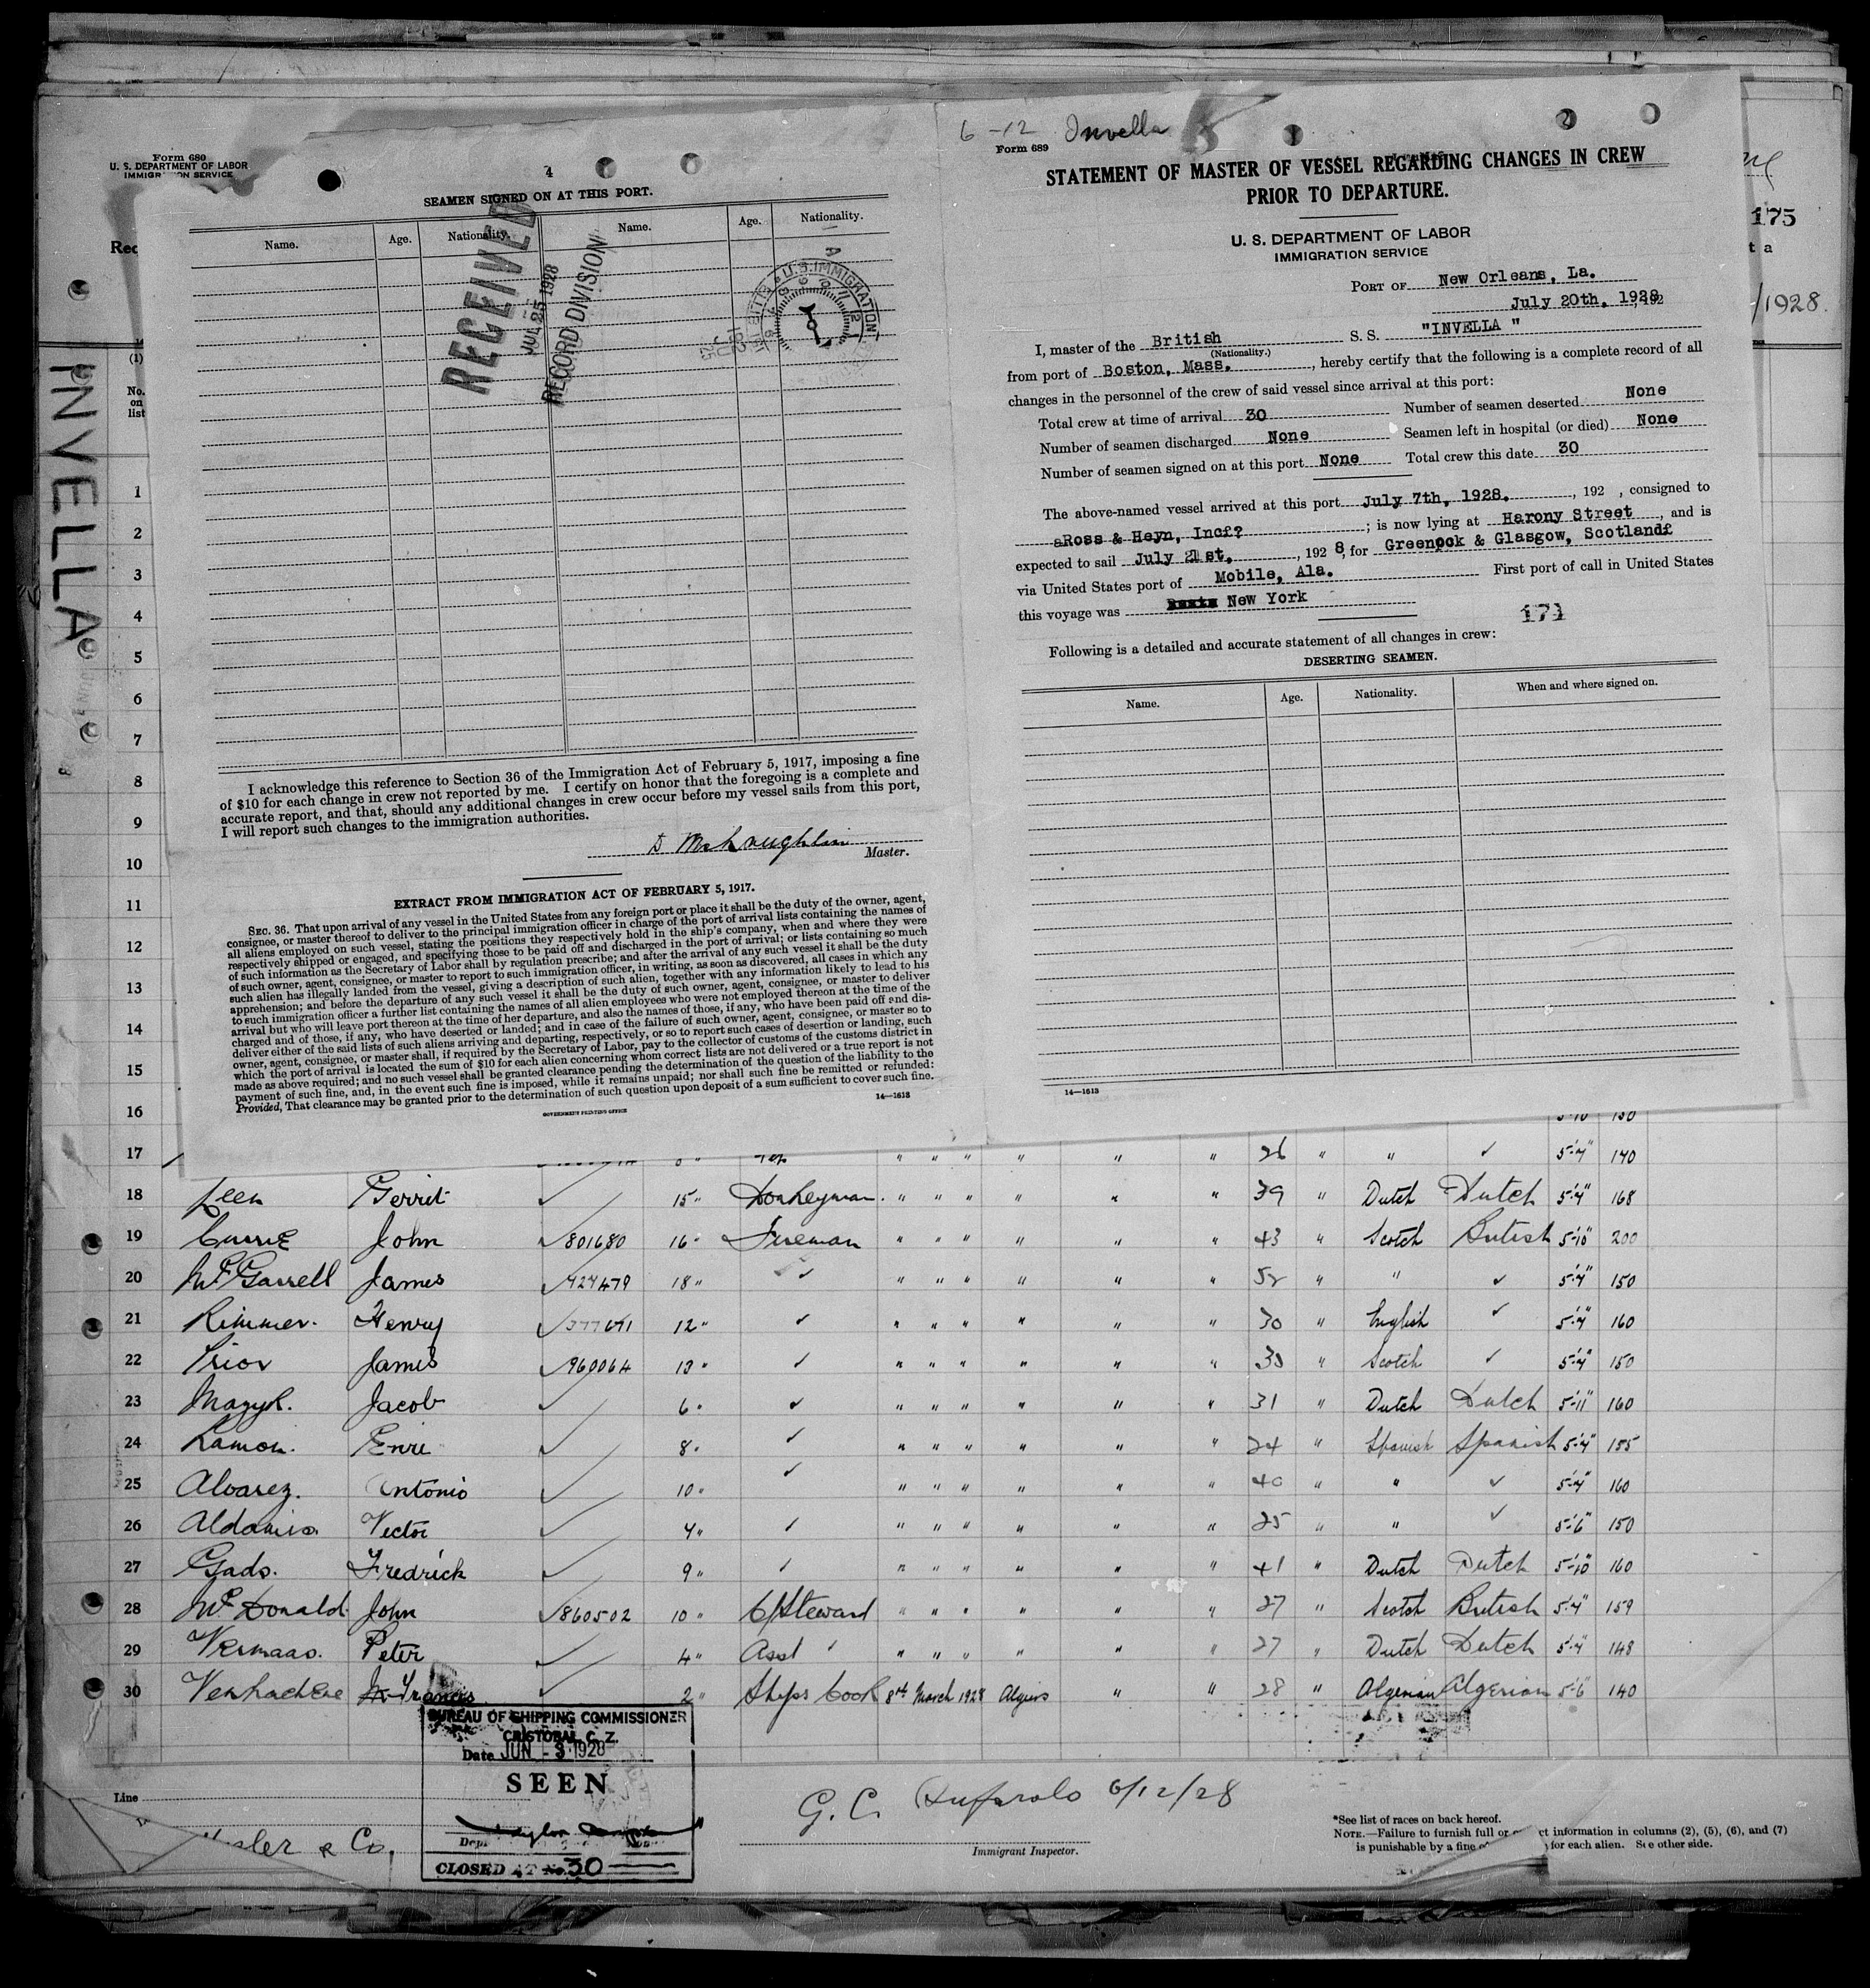 Form 680
U. S. DEPARTMENT OF LABOR
IMMIGRATION SERVICE
4
SEAMEN SIGNED ON AT THIS PORT.
Name. Age. Nationality. Name. Age. Nationality.
RECEIVED
JUL 25 1928
RECORD DIVISION
U.S. IMMIGRATION
I acknowledge this reference to Section 36 of the Immigration Act of February 5, 1917, imposing a fine
of $10 for each change in crew not reported by me. I certify on honor that the foregoing is a complete and
accurate report, and that, should any additional changes in crew occur before my vessel sails from this port,
I will report such changes to the immigration authorities.
D McLaughlin
Master.
EXTRACT FROM IMMIGRATION ACT OF FEBRUARY 5, 1917.
SEC. 36. That upon arrival of any vessel in the United States from any foreign port or place it shall be the duty of the owner, agent,
consignee, or master thereof to deliver to the principal immigration officer in charge of the port of arrival lists containing the names of
all aliens employed on such vessel, stating the positions they respectively hold in the ship's company, when and where they were
respectively shipped or engaged, and specifying those to be paid off and discharged in the port of arrival; or lists containing so much
of such information as the Secretary of Labor shall by regulation prescribe; and after the arrival of any such vessel it shall be the duty
of such owner, agent, consignee, or master to report to such immigration officer, in writing, as soon as discovered, all cases in which any
such alien has illegally landed from the vessel, giving a description of such alien, together with any information likely to lead to his
apprehension; and before the departure of any such vessel it shall be the duty of such owner, agent, consignee, or master to deliver
to such immigration officer a further list containing the names of all alien employees who were not employed thereon at the time of the
arrival but who will leave port thereon at the time of her departure, and also the names of those, if any, who have been paid off and dis-
charged and of those, if any, who have deserted or landed; and in case of the failure of such owner, agent, consignee, or master so to
deliver either of the said lists of such aliens arriving and departing, respectively, or so to report such cases of desertion or landing, such
owner, agent, consignee, or master shall, if required by the Secretary of Labor, pay to the collector of customs of the customs district in
which the port of arrival is located the sum of $10 for each alien concerning whom correct lists are not delivered or a true report is not
made as above required; and no such vessel shall be granted clearance pending the determination of the question of the liability to the
payment of such fine, and, in the event such fine is imposed, while it remains unpaid; nor shall such fine be remitted or refunded:
Provided, That clearance may be granted prior to the determination of such question upon deposit of a sum sufficient to cover such fine.
GOVERNMENT PRINTING OFFICE
14—1613
6-12 Invella
Form 689
2
STATEMENT OF MASTER OF VESSEL REGARDING CHANGES IN CREW
PRIOR TO DEPARTURE.
U. S. DEPARTMENT OF LABOR
IMMIGRATION SERVICE
PORT OF New Orleans, La.
July 20th. 1928, 192
I, master of the British S. S. "INVELLA "
(Nationality.)
from port of Boston, Mass. , hereby certify that the following is a complete record of all
changes in the personnel of the crew of said vessel since arrival at this port:
Total crew at time of arrival 30 Number of seamen deserted None
Number of seamen discharged None Seamen left in hospital (or died) None
Number of seamen signed on at this port None Total crew this date 30
The above-named vessel arrived at this port July 7th, 1928. , 192 , consigned to
Ross & Heyn, Inc ; is now lying at Harony Street , and is
expected to sail July 21st. , 1928, for Greenock & Glasgow, Scotland
via United States port of Mobile, Ala. First port of call in United States
this voyage was New York
171
Following is a detailed and accurate statement of all changes in crew:
DESERTING SEAMEN.
Name. Age. Nationality. When and where signed on.
14—1613
175
t a
/1928.
INVELLA
Rec
(1)
No.
on
list
1
2
3
4
5
6
7
8
9
10
11
12
13
14
15
16
17 " " " " " " 26 " " ✓ 5-4" 140
18 Leen Gerrit ✓ 15" Donkeyman. " " " " " " 39 " Dutch Dutch 5-4" 168
19 Currie John ✓801680 16" Fireman " " " " " " 43 " Scotch British 5-10" 200
20 McGarrell James ✓424479 18" ✓ " " " " " " 52 " " ✓ 5-4" 150
21 Rimmer. Henry ✓ 12" ✓ " " " " " " 30 " English ✓ 5-4" 160
22 Prior James ✓960064 13" ✓ " " " " " " 30 " Scotch ✓ 5-4" 150
23 Jacob ✓ 6" ✓ " " " " " " 31 " Dutch Dutch 5-11" 160
24 Ramon. Enri ✓ 8" ✓ " " " " " " 24 " Spanish Spanish 5-4" 155
25 Alvarez. Antonio ✓ 10" ✓ " " " " " " 40 " " ✓ 5-4" 160
26 Vector ✓ 4" ✓ " " " " " " 25 " " ✓ 5-6" 150
27 Gado. Fredrick ✓ 9" ✓ " " " " " " 41 " Dutch Dutch 5-10" 160
28 McDonald. John ✓860502 10" C/Steward " " " " " " 27 " Scotch British 5-4" 159
29 Vermaas. Peter ✓ 4" Asst ✓ " " " " " " 27 " Dutch Dutch 5-4" 148
30 Francis ✓ 2" Ships Cook 8th March 1928 Algiers " " 28 " Algerian Algerian 5-6" 140
BUREAU OF SHIPPING COMMISSIONER
CRISTOBAL C. Z.
Date JUN -3 1928
SEEN
CLOSED AT No. 30
Line
& Co.
G. C. 6/12/28
Immigrant Inspector.
*See list of races on back hereof.
NOTE.—Failure to furnish full or information in columns (2), (5), (6), and (7)
is punishable by a fine for each alien. See other side.